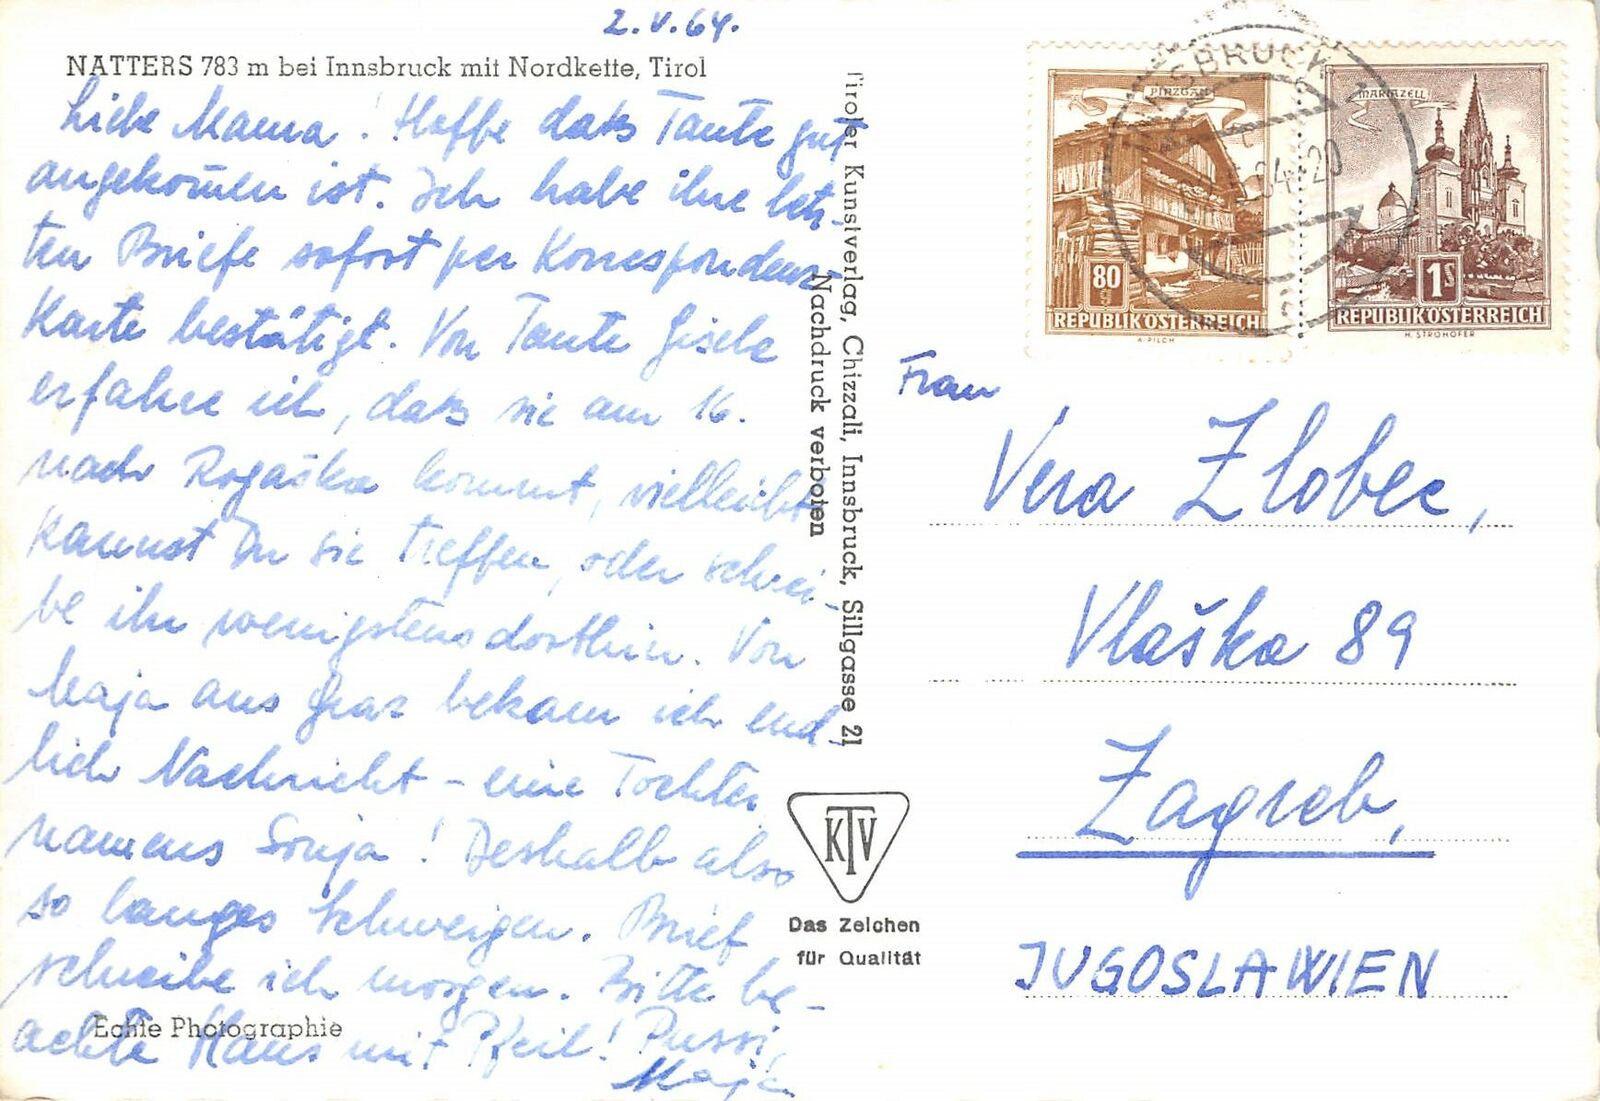 2.V.64.
NATTERS 783 m bei Innsbruck mit Nordkette, Tirol
Liebe Mama! Hoffe daß Tante gut
angekom̄en ist. Ich habe ihre letz-
ten Briefe sofort per Korrespondenz
Karte bestätigt. Von Tante Gisele
erfahre ich, daß sie am 16.
nach Rogaška kommt, vielleicht
kannst Du sie treffen, oder schrei-
be ihr wenigstens dorthin. Von
Maja aus Graz bekam ich end-
lich Nachricht – eine Tochter
namens Sonja! Deshalb also
so langes Schweigen. Brief
schreibe ich morgen. Bitte be-
achte Haus mit Pfeil! Pussi,
Maja
Echte Photographie
Tiroler Kunstverlag, Chizzali, Innsbruck, Sillgasse 21
Nachdruck verboten
KTV
Das Zeichen
für Qualität
PINZGAU
80
REPUBLIK ÖSTERREICH
A. PILCH
MARIAZELL
1S
REPUBLIK ÖSTERREICH
H. STROHOFER
INNSBRUCK
Frau
Vera Zlobec,
Vlaška 89
Zagreb,
JUGOSLAWIEN